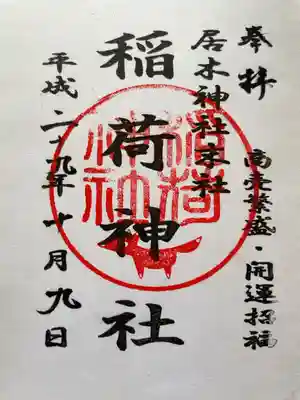 奉拝
商売繁盛・開運招福
居木神社末社
稲荷神社
平成二十九年十月九日
稲荷
神社